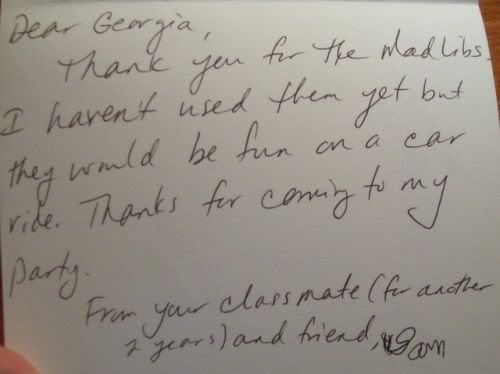 Dear Georgia,
Thank you for the Mad Libs.
I havent used them yet but
they would be fun on a car
ride. Thanks for coming to my
party.
From your classmate (for another
2 years) and friend, Sam